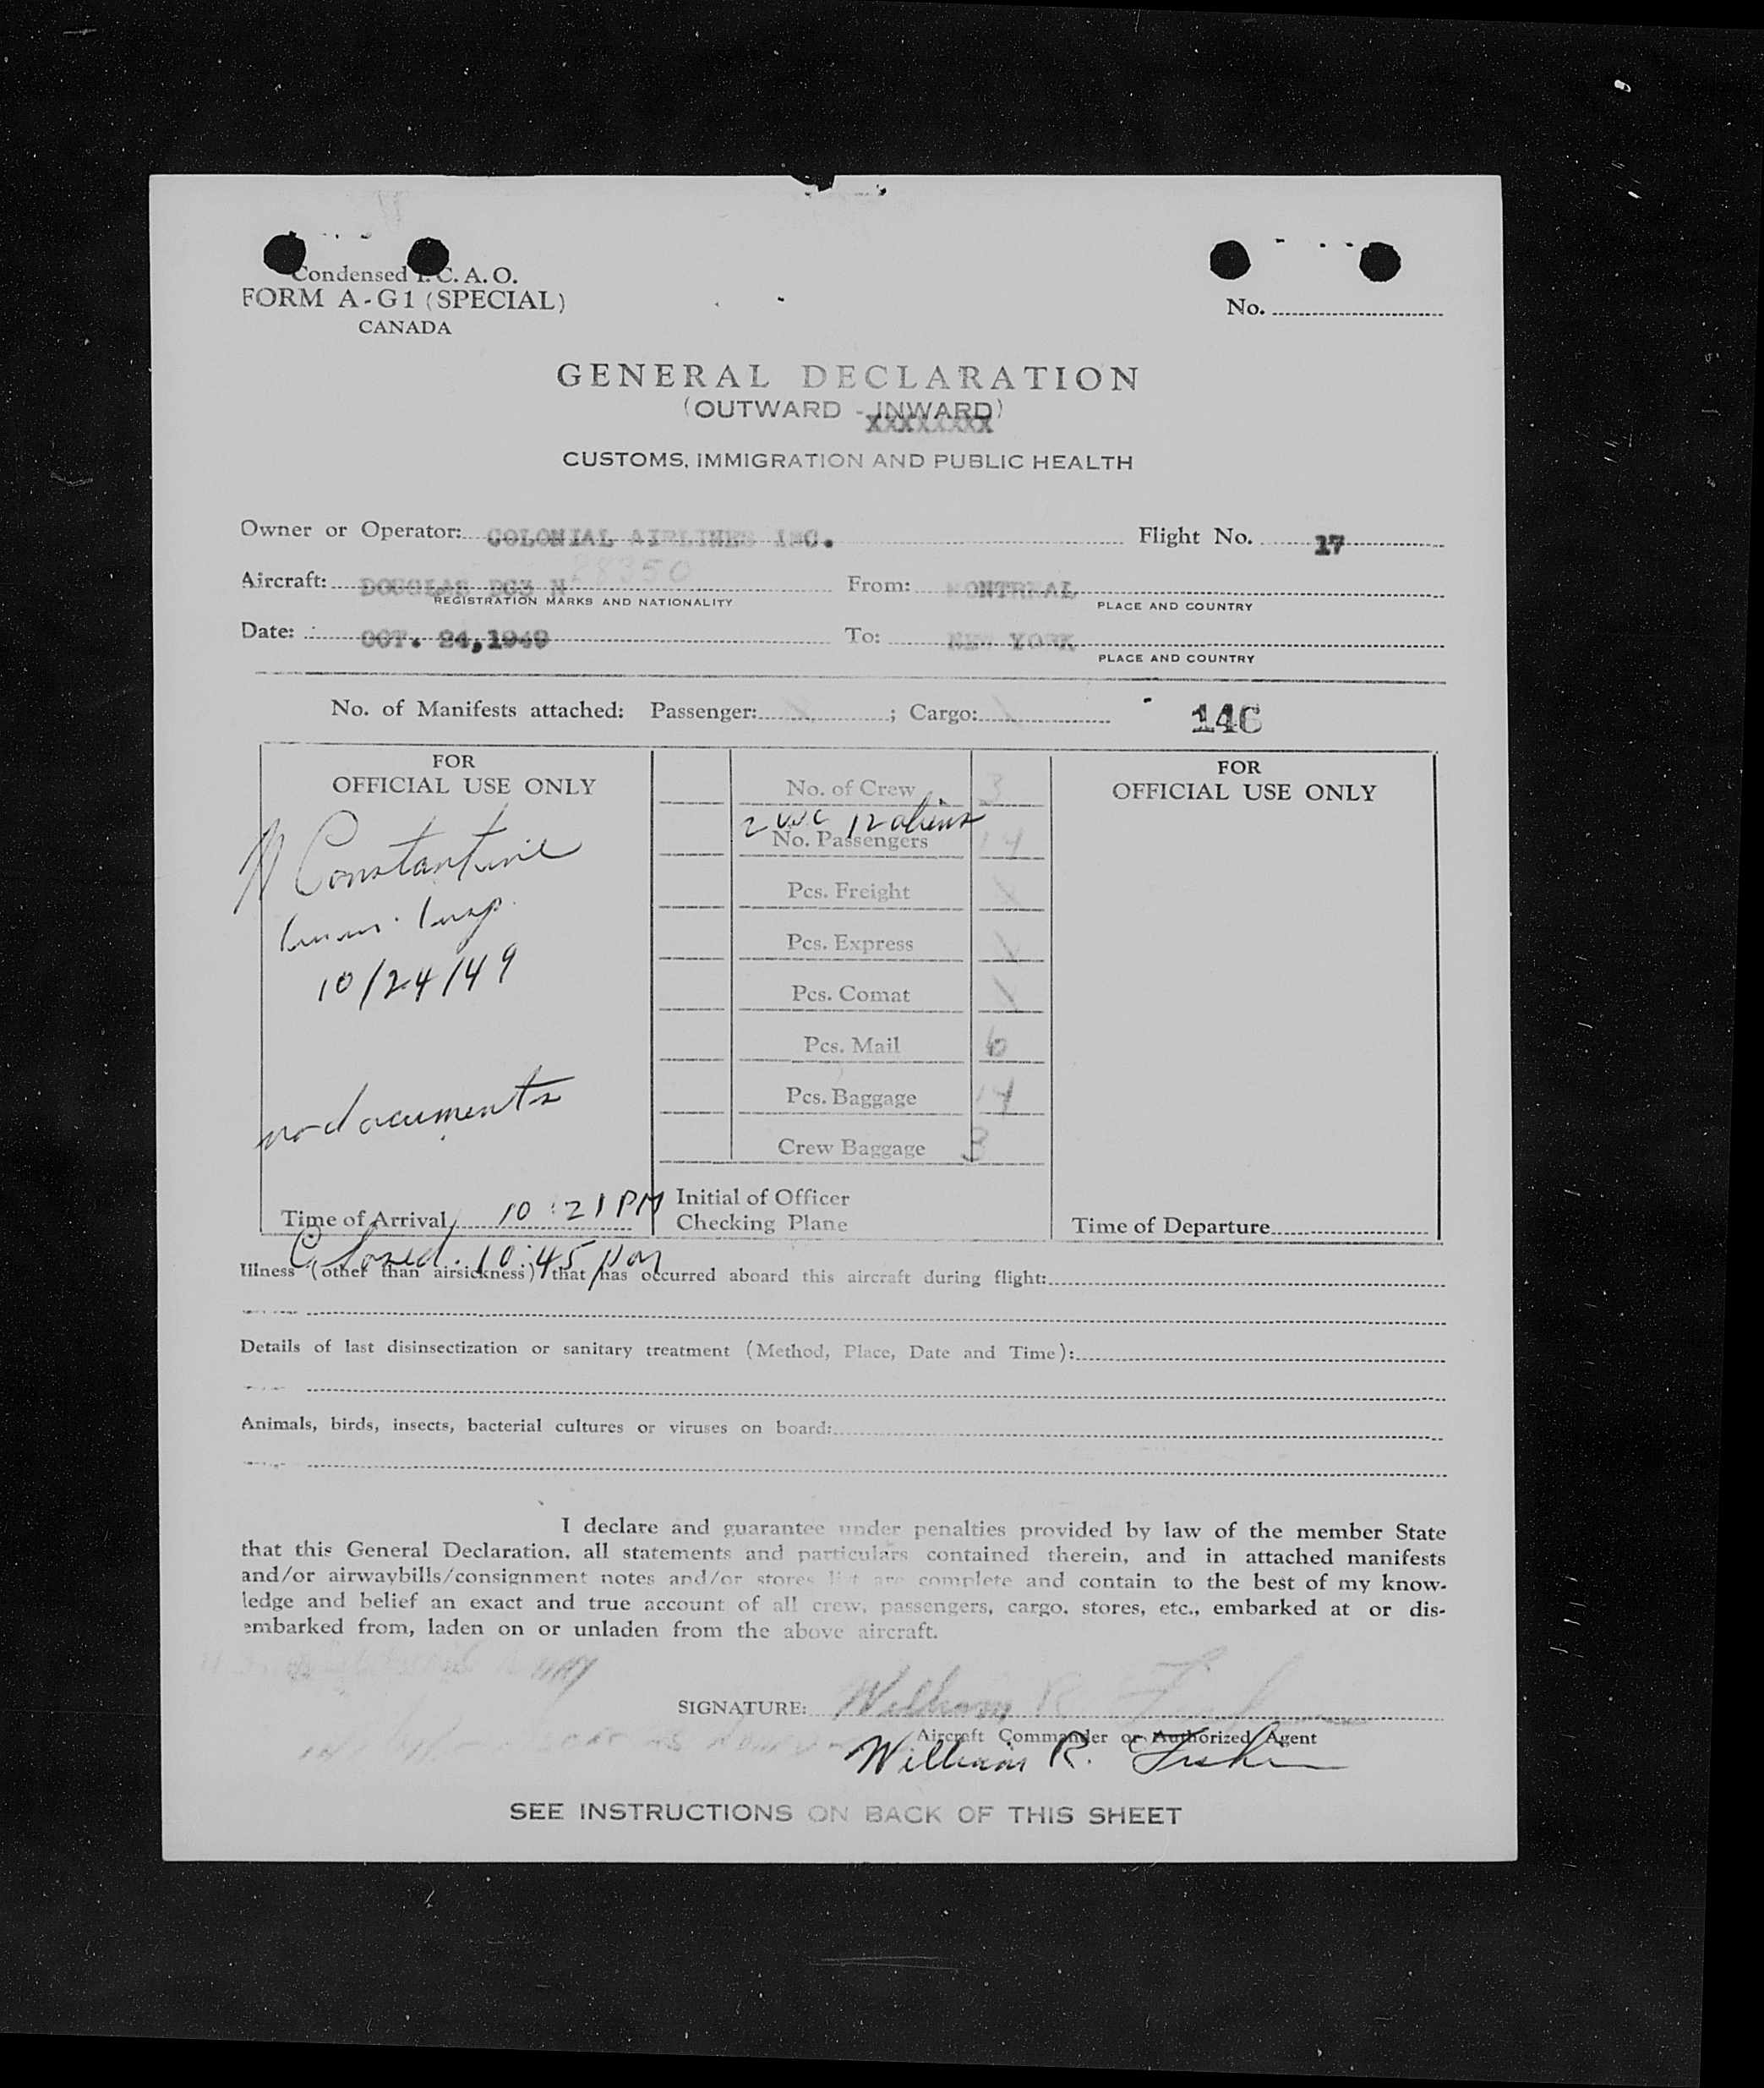 Condensed I. C. A. O.
FORM A-G1 (SPECIAL)
CANADA
No.
GENERAL DECLARATION
(OUTWARD - INWARD)
XXXXXXXX
CUSTOMS, IMMIGRATION AND PUBLIC HEALTH
Owner or Operator: COLONIAL AIRLINES INC. Flight No. 17
Aircraft: DOUGLAS DC3 N 28350 From: MONTREAL
REGISTRATION MARKS AND NATIONALITY PLACE AND COUNTRY
Date: OCT. 24,1949 To: NEW YORK
PLACE AND COUNTRY
No. of Manifests attached: Passenger: ; Cargo: 146
FOR
OFFICIAL USE ONLY
Constantine
Imm. Insp.
10/24/49
no documents
Time of Arrival 10:21 PM
Closed. 10:45 pm
No. of Crew 3
2 USC 12 aliens
No. Passengers 14
Pcs. Freight
Pcs. Express
Pcs. Comat
Pcs. Mail 6
Pcs. Baggage 14
Crew Baggage 3
Initial of Officer
Checking Plane
FOR
OFFICIAL USE ONLY
Time of Departure
Illness (other than airsickness) that has occurred aboard this aircraft during flight:
Details of last disinsectization or sanitary treatment (Method, Place, Date and Time):
Animals, birds, insects, bacterial cultures or viruses on board:
I declare and guarantee under penalties provided by law of the member State
that this General Declaration, all statements and particulars contained therein, and in attached manifests
and/or airwaybills/consignment notes and/or stores list are complete and contain to the best of my know-
ledge and belief an exact and true account of all crew, passengers, cargo, stores, etc., embarked at or dis-
embarked from, laden on or unladen from the above aircraft.
SIGNATURE: William R. Fisher
Aircraft Commander or Authorized Agent
William R. Fisher
SEE INSTRUCTIONS ON BACK OF THIS SHEET